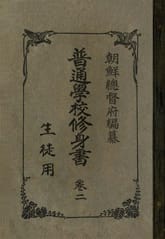 朝鮮總督府編纂
普通學校修身書 卷二
生徒用